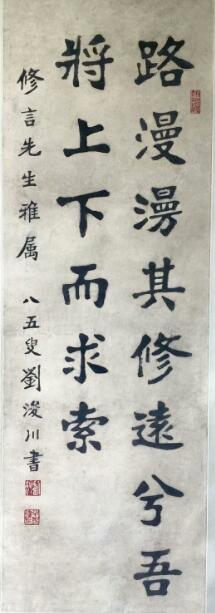 路漫漫其修遠兮吾
將上下而求索
修言先生雅属 八五叟劉浚川書